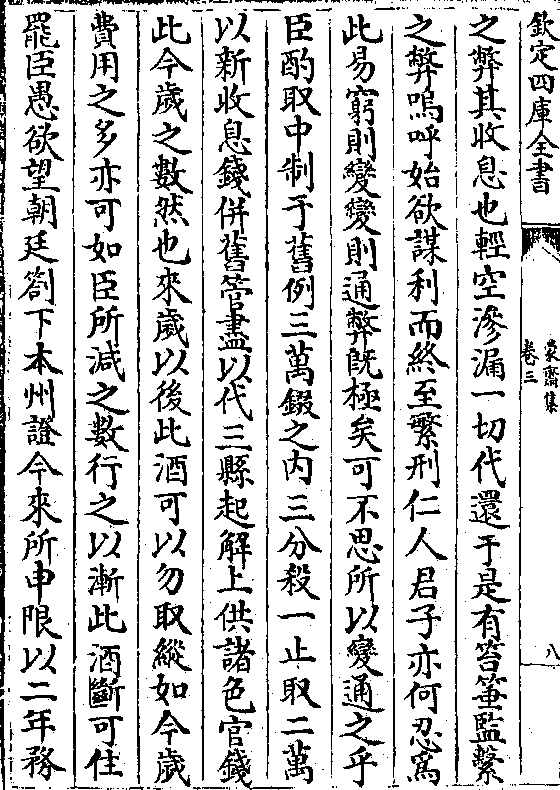 欽定四庫全書
蒙齋集
卷三
八
之弊其收息也輕空滲漏一切代還于是有笞箠監繫
之弊嗚呼始欲謀利而終至繫刑仁人君子亦何忍焉
此易窮則變變則通弊旣極矣可不思所以變通之乎
臣酌取中制于舊例三萬錣之内三分殺一止取二萬
以新收息錢併舊管盡以代三縣起解上供諸色官錢
此今歲之數然也來歲以後此酒可以勿取縱如今歲
費用之多亦可如臣所減之數行之以漸此酒斷可住
罷臣愚欲望朝廷劄下本州證今來所申限以二年務